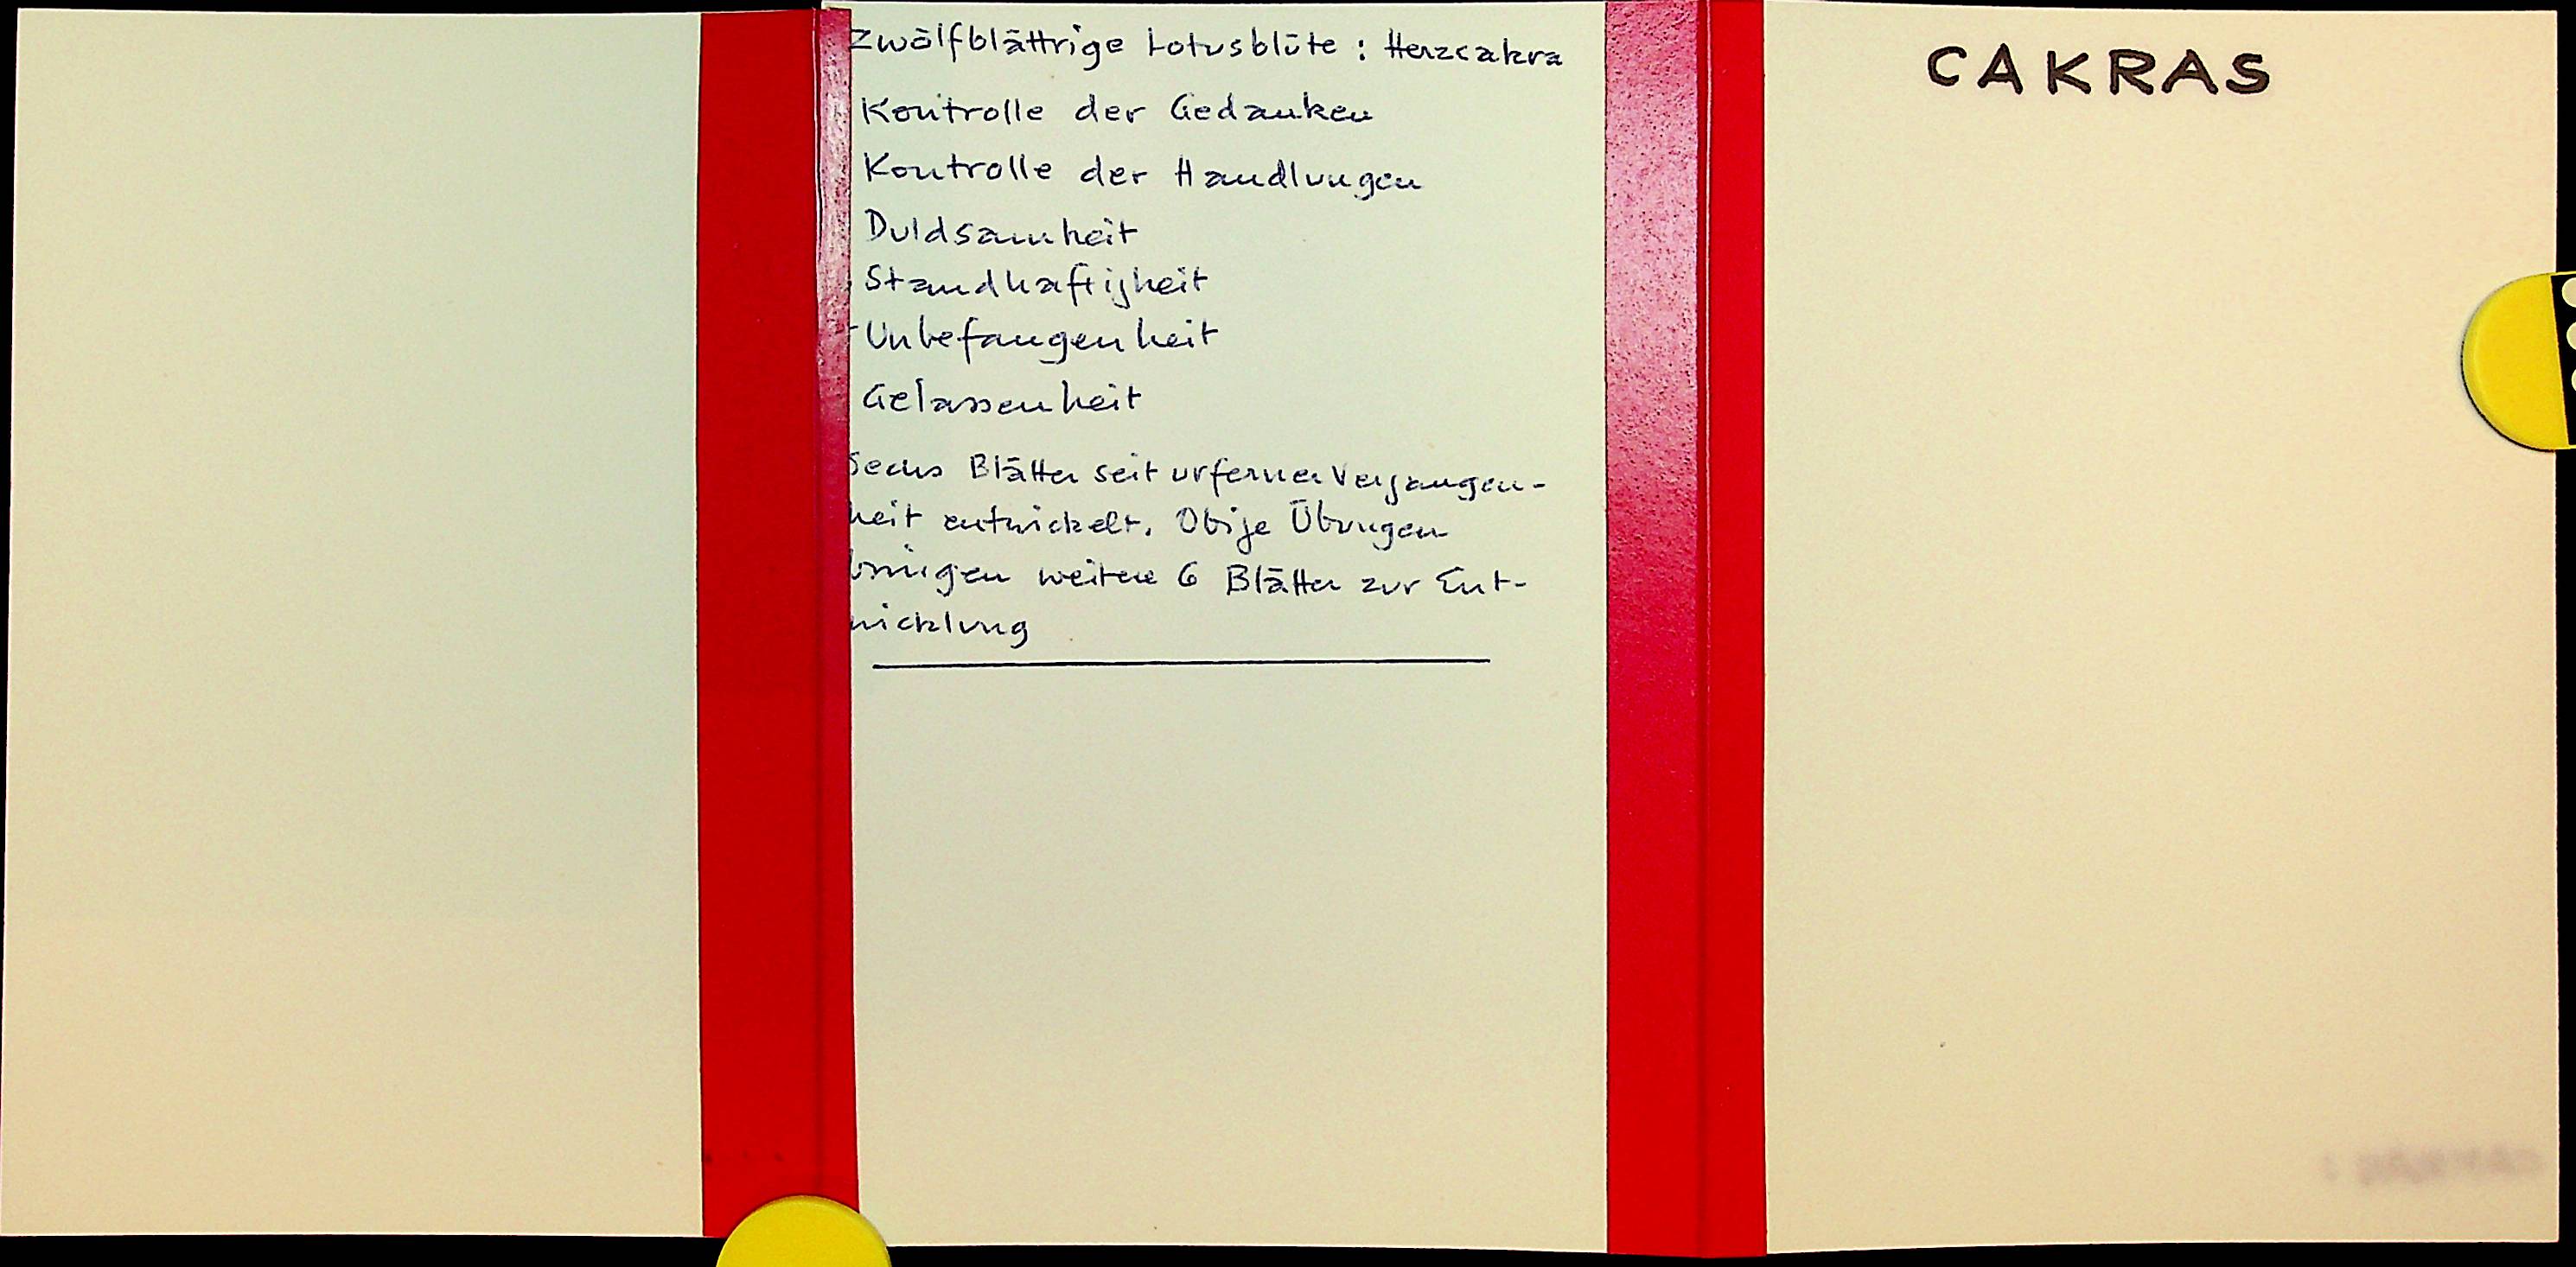 Zwölfblättrige Lotusblüte : Herzcakra
Kontrolle der Gedanken
Kontrolle der Handlungen
Duldsamkeit
Standhaftigkeit
Unbefangenheit
Gelassenheit
Sechs Blätter seit urferner Vergangen-
heit entwickelt. Obige Übungen
bringen weitere 6 Blätter zur Ent-
wicklung
CAKRAS